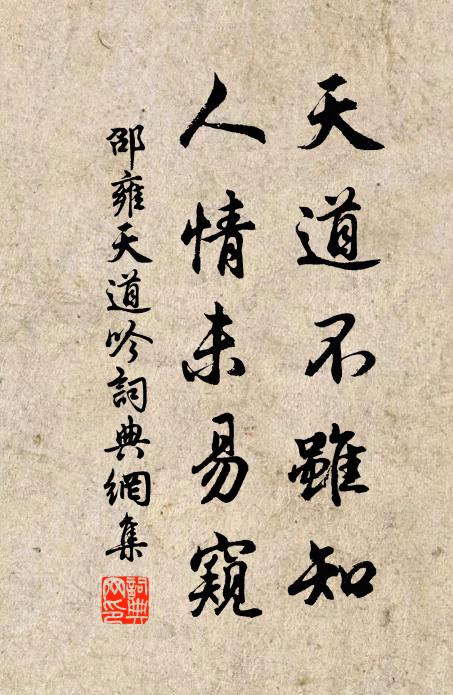 天道不雖知
人情未易窺
邵雍天道吟詞典網集
詞典網印